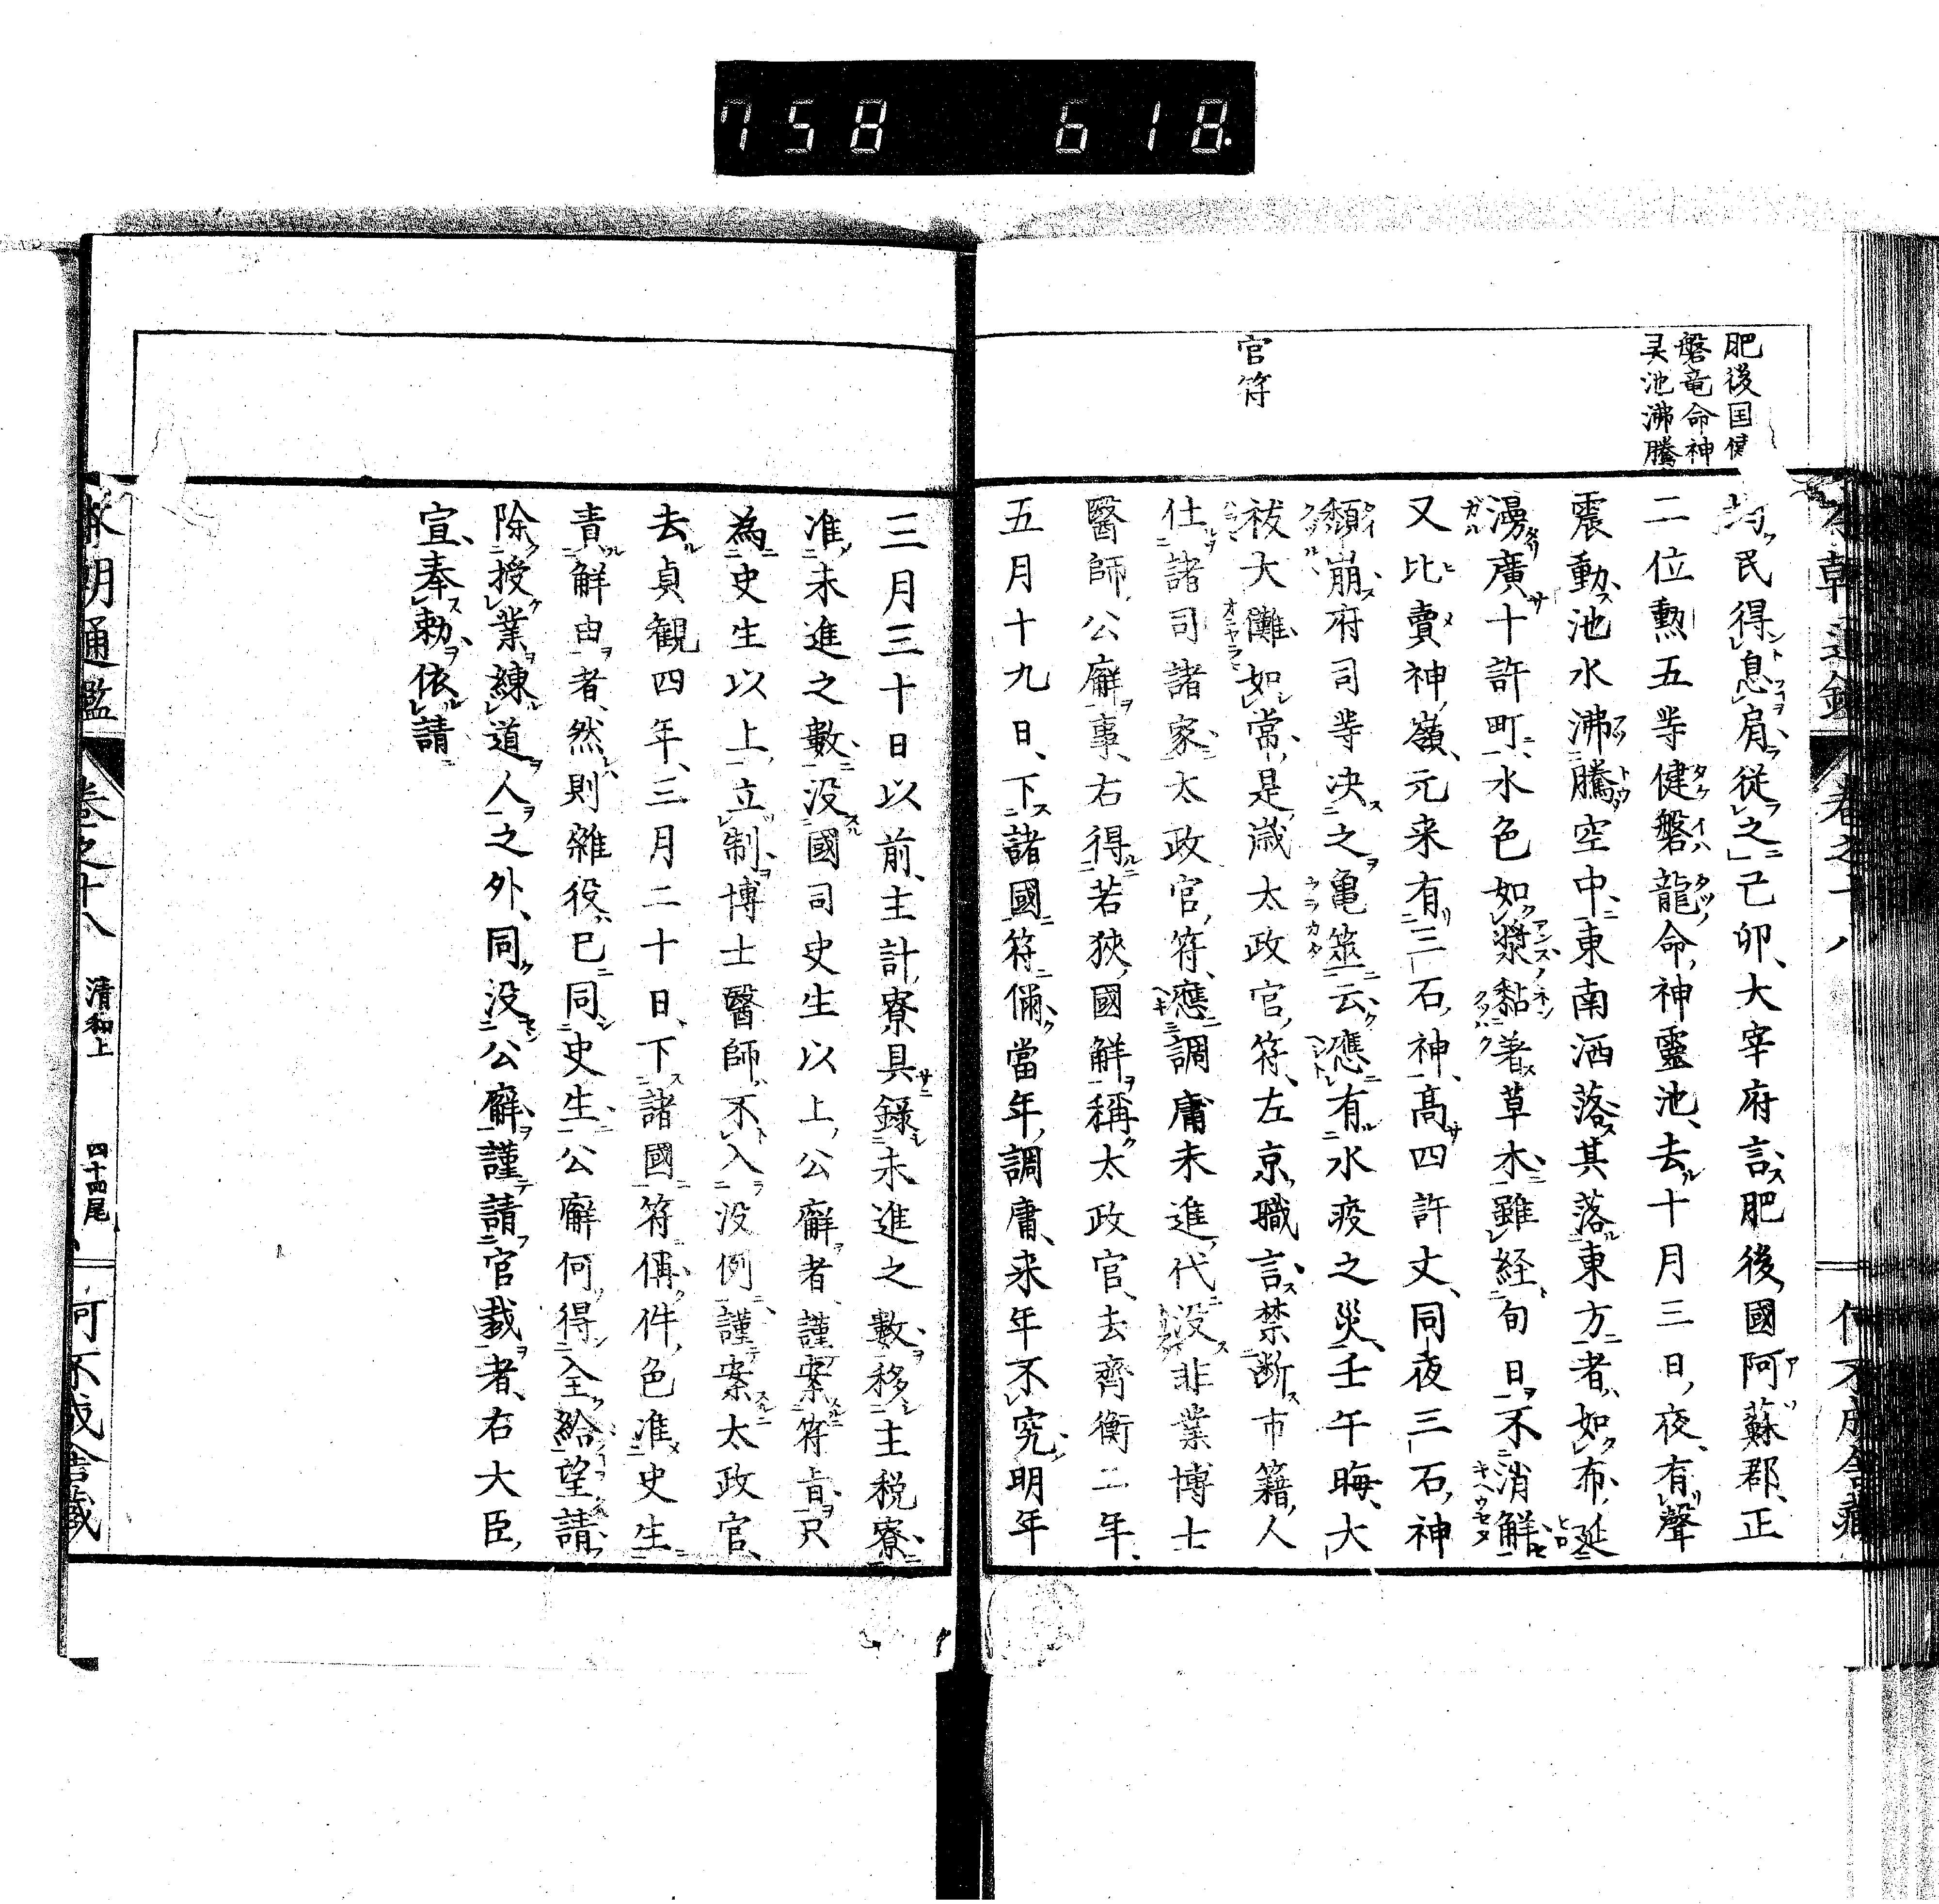 758 618
肥後国健
磐竜命神
灵池沸騰
官符
均民得息肩従之己卯大宰府言肥後國阿蘇郡正
二位勲五等健磐龍命神靈池去十月三日夜有聲
震動池水沸騰空中東南洒落其落東方者如布延
漫廣十許町水色如漿黏着草木雖経旬日不消解
又比賣神嶺元来有三石神高四許丈同夜三石神
頽崩府司等决之亀筮云應有水疫之災壬午晦大
祓大儺如常是歳太政官符左京職言禁断市籍人
仕諸司諸家太政官符應調庸未進代没非業博士
醫師公廨事右得若狹國解稱太政官去齊衡二年
五月十九日下諸國符偁當年調庸来年不究明年
三月三十日以前主計寮具錄未進之數移主税寮
准未進之數没國司史生以上公廨者謹案符旨只
為史生以上立制博士醫師不入没例謹案太政官
去貞観四年三月二十日下諸國符偁件色准史生
責解由者然則雜役已同史生公廨何得全給望請
除授業練道人之外同没公廨謹請官裁者右大臣
宣奉勅依請
本朝通鑑 卷之十八 清和上 四十四尾 何不成舎蔵